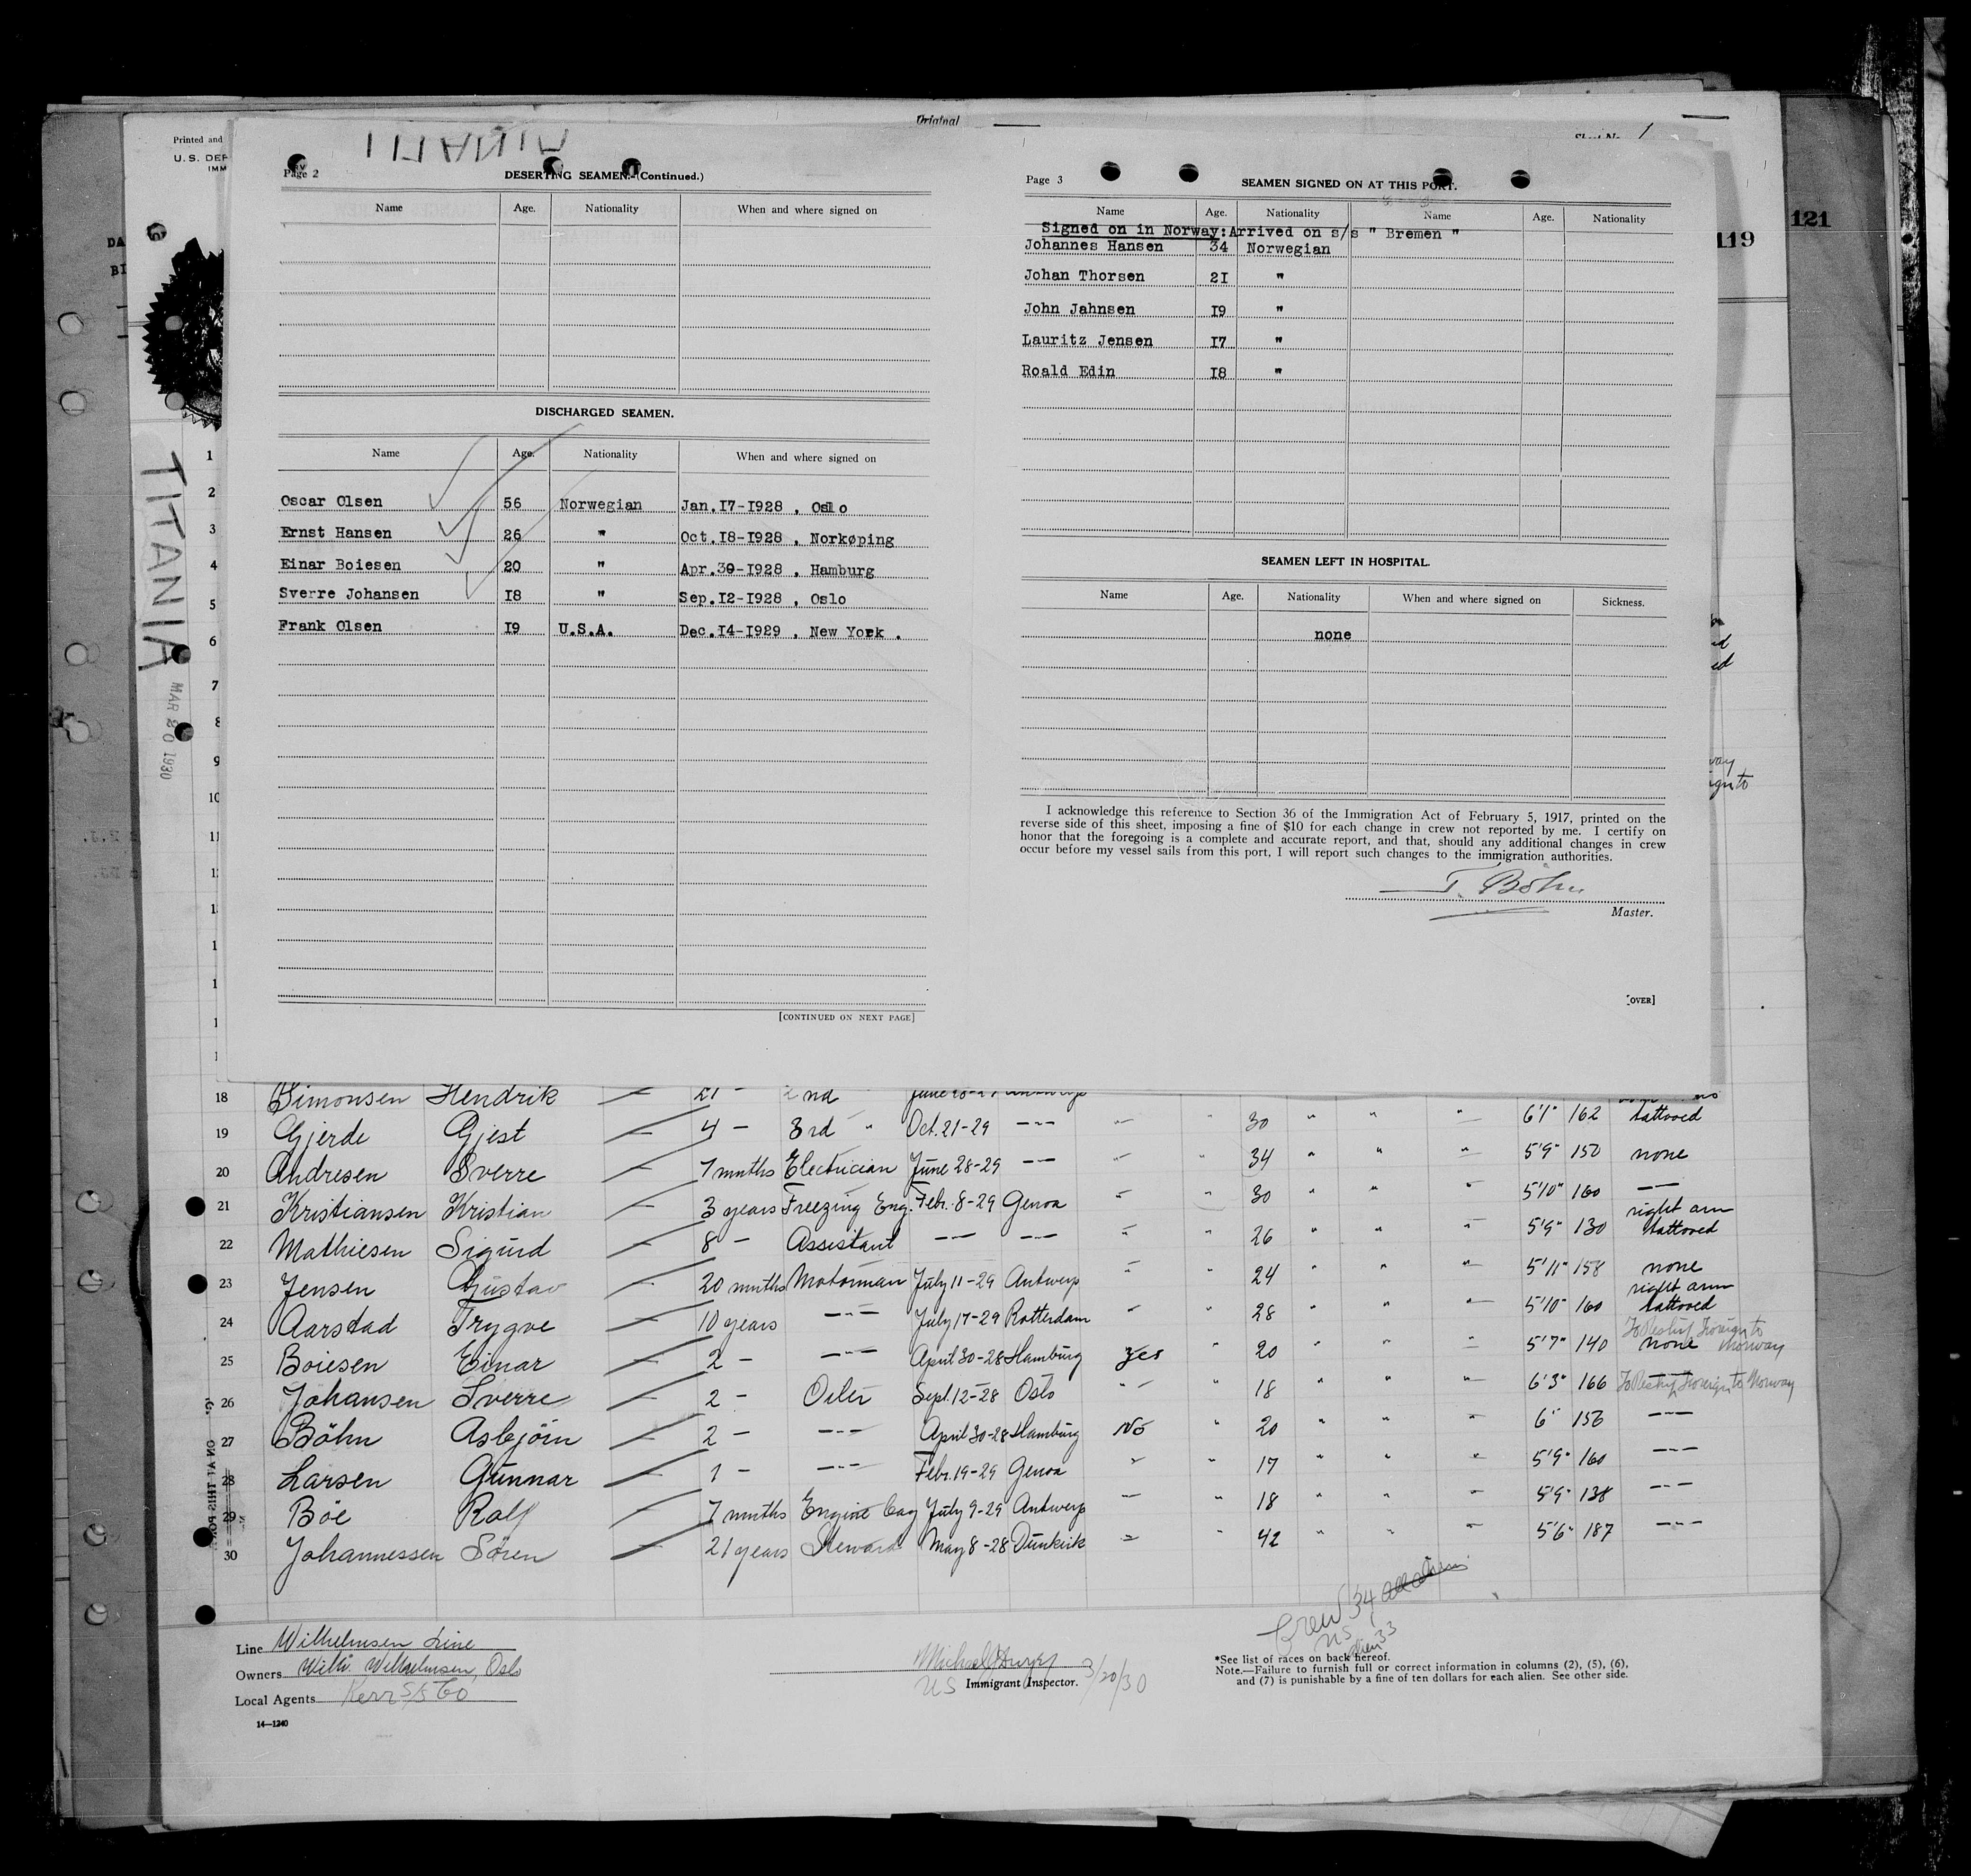 Original
Printed and
U.S. DEP
IMM
TITANIA
Page 2
DESERTING SEAMEN.-(Continued.)
Name Age. Nationality When and where signed on
DISCHARGED SEAMEN.
Name Age. Nationality When and where signed on
Oscar Olsen 56 Norwegian Jan.I7-I928 , Oslo
Ernst Hansen 26 " Oct.I8-I928 , Norkøping
Einar Boiesen 20 " Apr.30-I928 , Hamburg
Sverre Johansen I8 " Sep.I2-I928 , Oslo
Frank Olsen I9 U.S.A. Dec.I4-I929 , New York .
[CONTINUED ON NEXT PAGE]
1
Page 3
SEAMEN SIGNED ON AT THIS PORT.
Name Age. Nationality Name Age. Nationality
Signed on in Norway:Arrived on s/s " Bremen "
Johannes Hansen 34 Norwegian
Johan Thorsen 2I "
John Jahnsen I9 "
Lauritz Jensen I7 "
Roald Edin I8 "
SEAMEN LEFT IN HOSPITAL.
Name Age. Nationality When and where signed on Sickness.
none
I acknowledge this reference to Section 36 of the Immigration Act of February 5, 1917, printed on the
reverse side of this sheet, imposing a fine of $10 for each change in crew not reported by me. I certify on
honor that the foregoing is a complete and accurate report, and that, should any additional changes in crew
occur before my vessel sails from this port, I will report such changes to the immigration authorities.
T. Böhn
Master.
[OVER]
119
121
TITANIA
MAR 20 1930
1
2
3
4
5
6
7
8
9
10
11
18 Simonsen Hendrik — 21 - 2nd
19 Gjerde Gjest — 4 - 3rd " Oct.21-29 -"- " " 30 " " " 6'1" 162 tattooed
20 Andresen Sverre — 7 mnths Electrician June 28-29 -"- " " 34 " " " 5'9" 150 none
21 Kristiansen Kristian — 3 years Freezing Eng. Febr. 8-29 Genoa " " 30 " " " 5'10" 160 -"-
22 Mathiesen Sigurd — 8 - Assistant -"- -"- " " 26 " " " 5'9" 130 right arm tattooed
23 Jensen Gustav — 20 mnths Motorman July 11-29 Antwerp " " 24 " " " 5'11" 158 none
24 Aarstad Trygve — 10 years -"- July 17-29 Rotterdam " " 28 " " " 5'10" 160 right arm tattooed
25 Boiesen Einar — 2 - -"- April 30-28 Hamburg Yes " 20 " " " 5'7" 140 none To Reship Foreign to Norway
26 Johansen Sverre — 2 - Oiler Sept. 12-28 Oslo " " 18 " " " 6'3" 166 To Reship Foreign to Norway
27 Böhn Asbjörn — 2 - -"- April 30-28 Hamburg No " 20 " " " 6' 156 -"-
28 Larsen Gunnar — 1 - -"- Febr. 19-29 Genoa " " 17 " " " 5'9" 160 -"-
29 Böe Rolf — 7 mnths Engine boy July 9-29 Antwerp " " 18 " " " 5'9" 138 -"-
30 Johannessen Sören — 21 years Steward May 8-28 Dunkirk " " 42 " " " 5'6" 187 -"-
Crew 34
US
alien 33
Line Wilhelmsen Line
Owners Wilh. Wilhelmsen, Oslo
Local Agents Kerr S/S Co
14—1240
US Immigrant Inspector. 3/20/30
*See list of races on back hereof.
Note.—Failure to furnish full or correct information in columns (2), (5), (6),
and (7) is punishable by a fine of ten dollars for each alien. See other side.